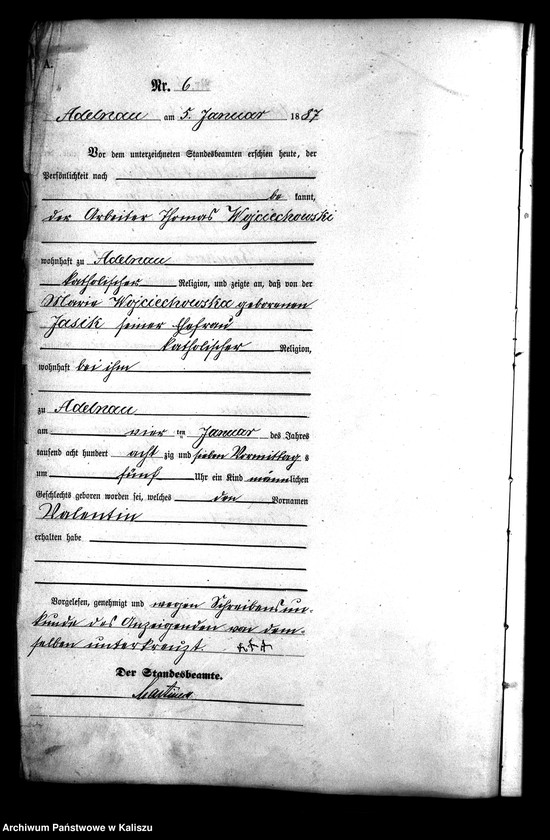 A.
Nr. 6
Adelnau am 5. Januar 1887
Vor dem unterzeichneten Standesbeamten erschien heute, der
Persönlichkeit nach
be kannt,
der Arbeiter Thomas Wojciechowski
wohnhaft zu Adelnau
katholischer Religion, und zeigte an, daß von der
Marie Wojciechowska geborenen
Jasik seiner Ehefrau
katholischer Religion,
wohnhaft bei ihm
zu Adelnau
am vier ten Januar des Jahres
tausend acht hundert acht zig und sieben Vormittag s
um fünf Uhr ein Kind männlichen
Geschlechts geboren worden sei, welches den Vornamen
Valentin
erhalten habe
Vorgelesen, genehmigt und wegen Schreibensun-
kunde des Anzeigenden von dem-
selben unterkreuzt +++
Der Standesbeamte.
Archiwum Państwowe w Kaliszu